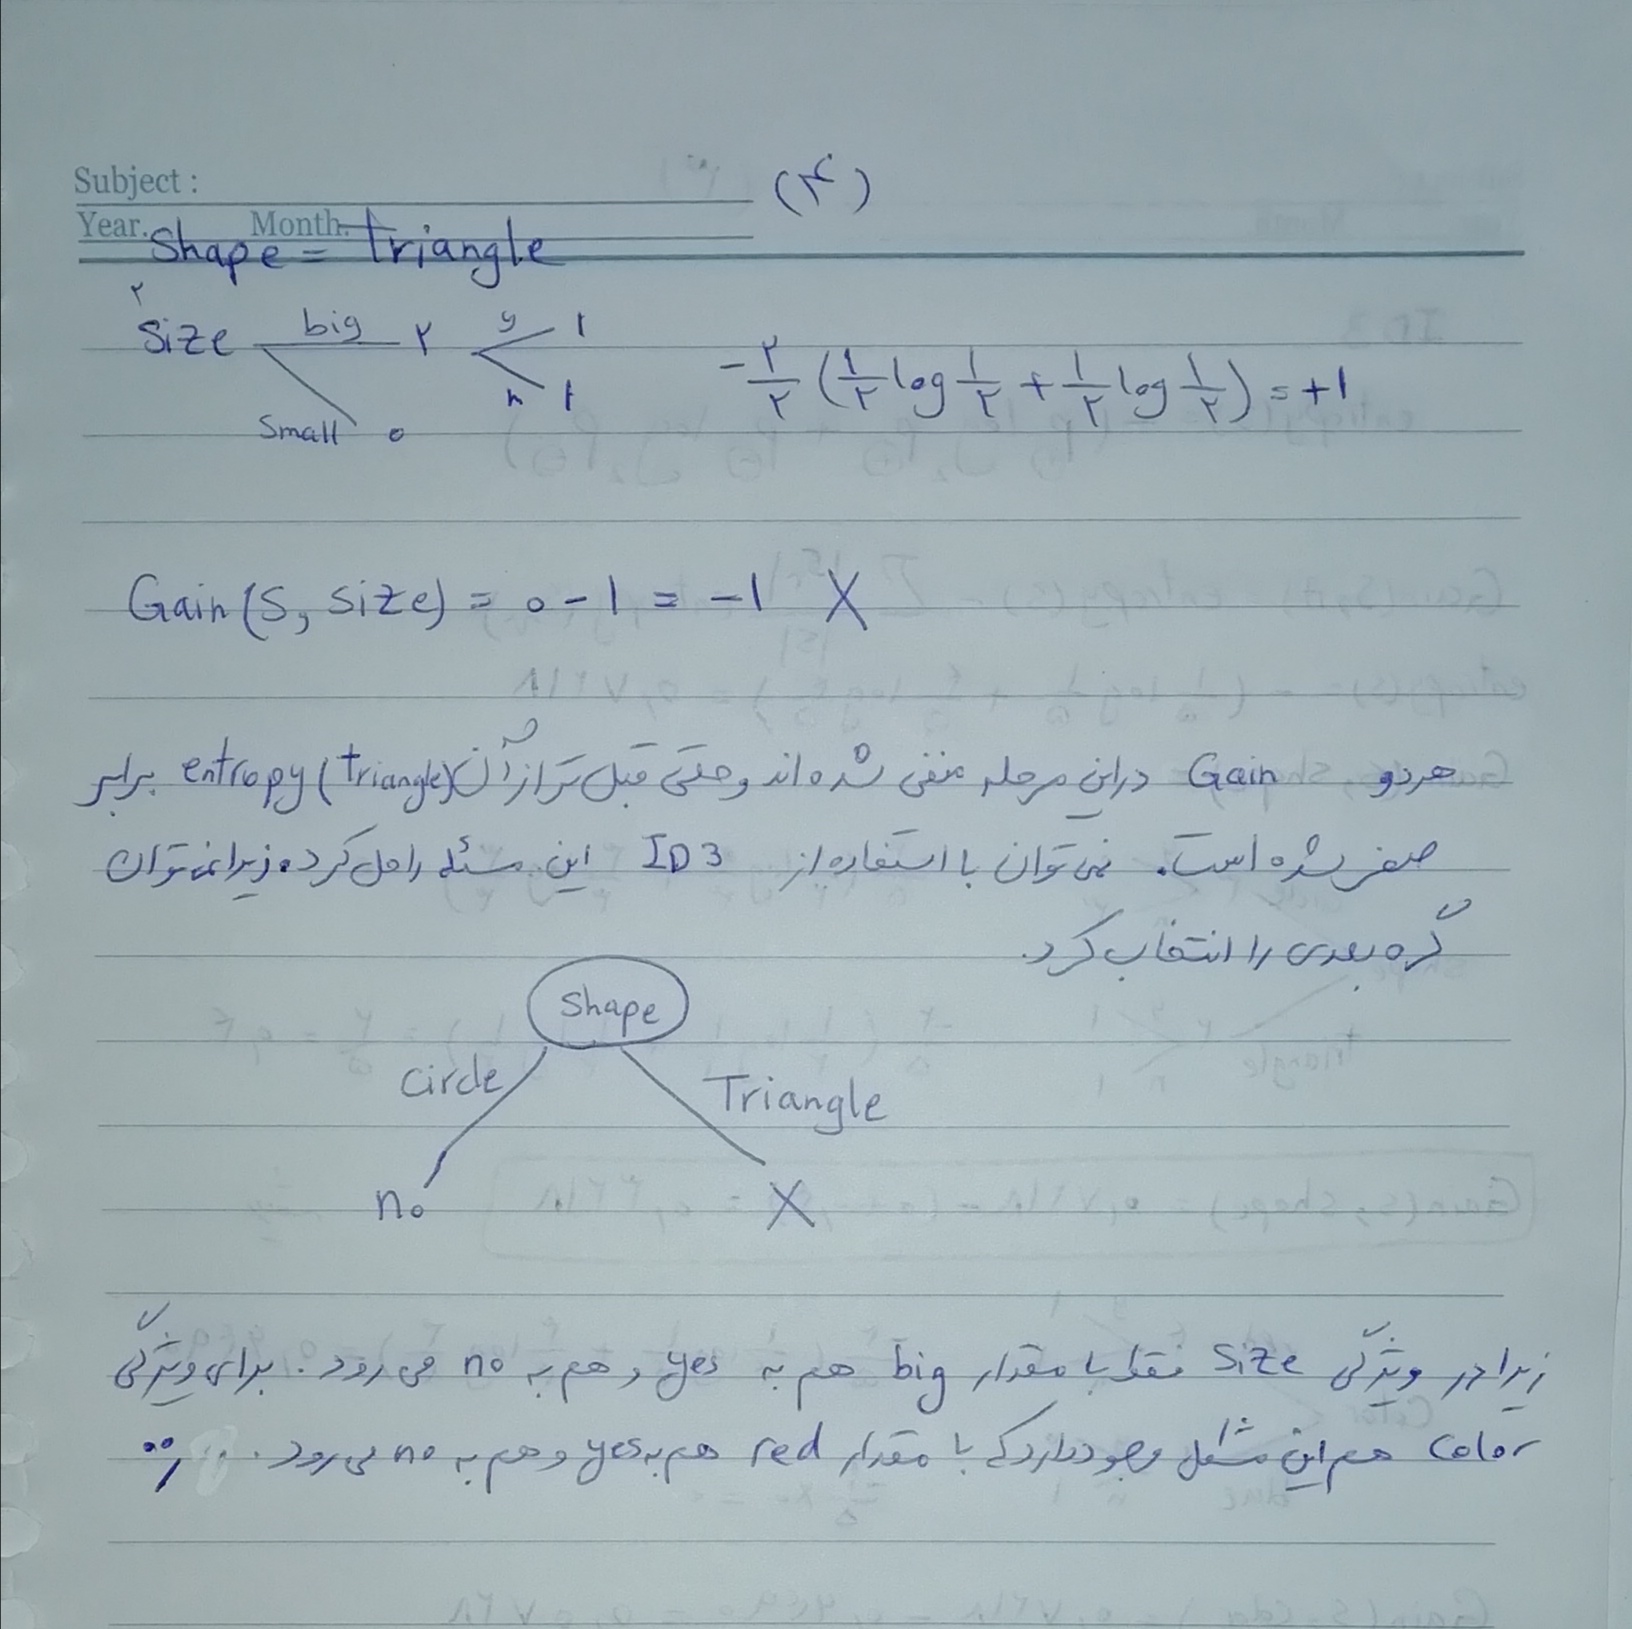 Subject :
(۴)
Year. Month.
Shape = Triangle
۲
Size big ۲ y ۱
n ۱
Small ۰
-۲/۲ (۱/۲ log ۱/۲ + ۱/۲ log ۱/۲) = +۱
Gain(S, size) = ۰ - ۱ = -۱ X
هر دو Gain در این مرحله منفی شده اند و حتی قبل تر از آن entropy (triangle) برابر
صفر شده است. نمی توان با استفاده از ID3 این مسئله را حل کرد. زیرا نمی توان
گره بعدی را انتخاب کرد.
Shape
Circle Triangle
no X
زیرا در ویژگی Size فقط با مقدار big هم به yes و هم به no می رود. برای ویژگی
Color هم این مشکل وجود دارد که با مقدار red هم به yes و هم به no می رود.